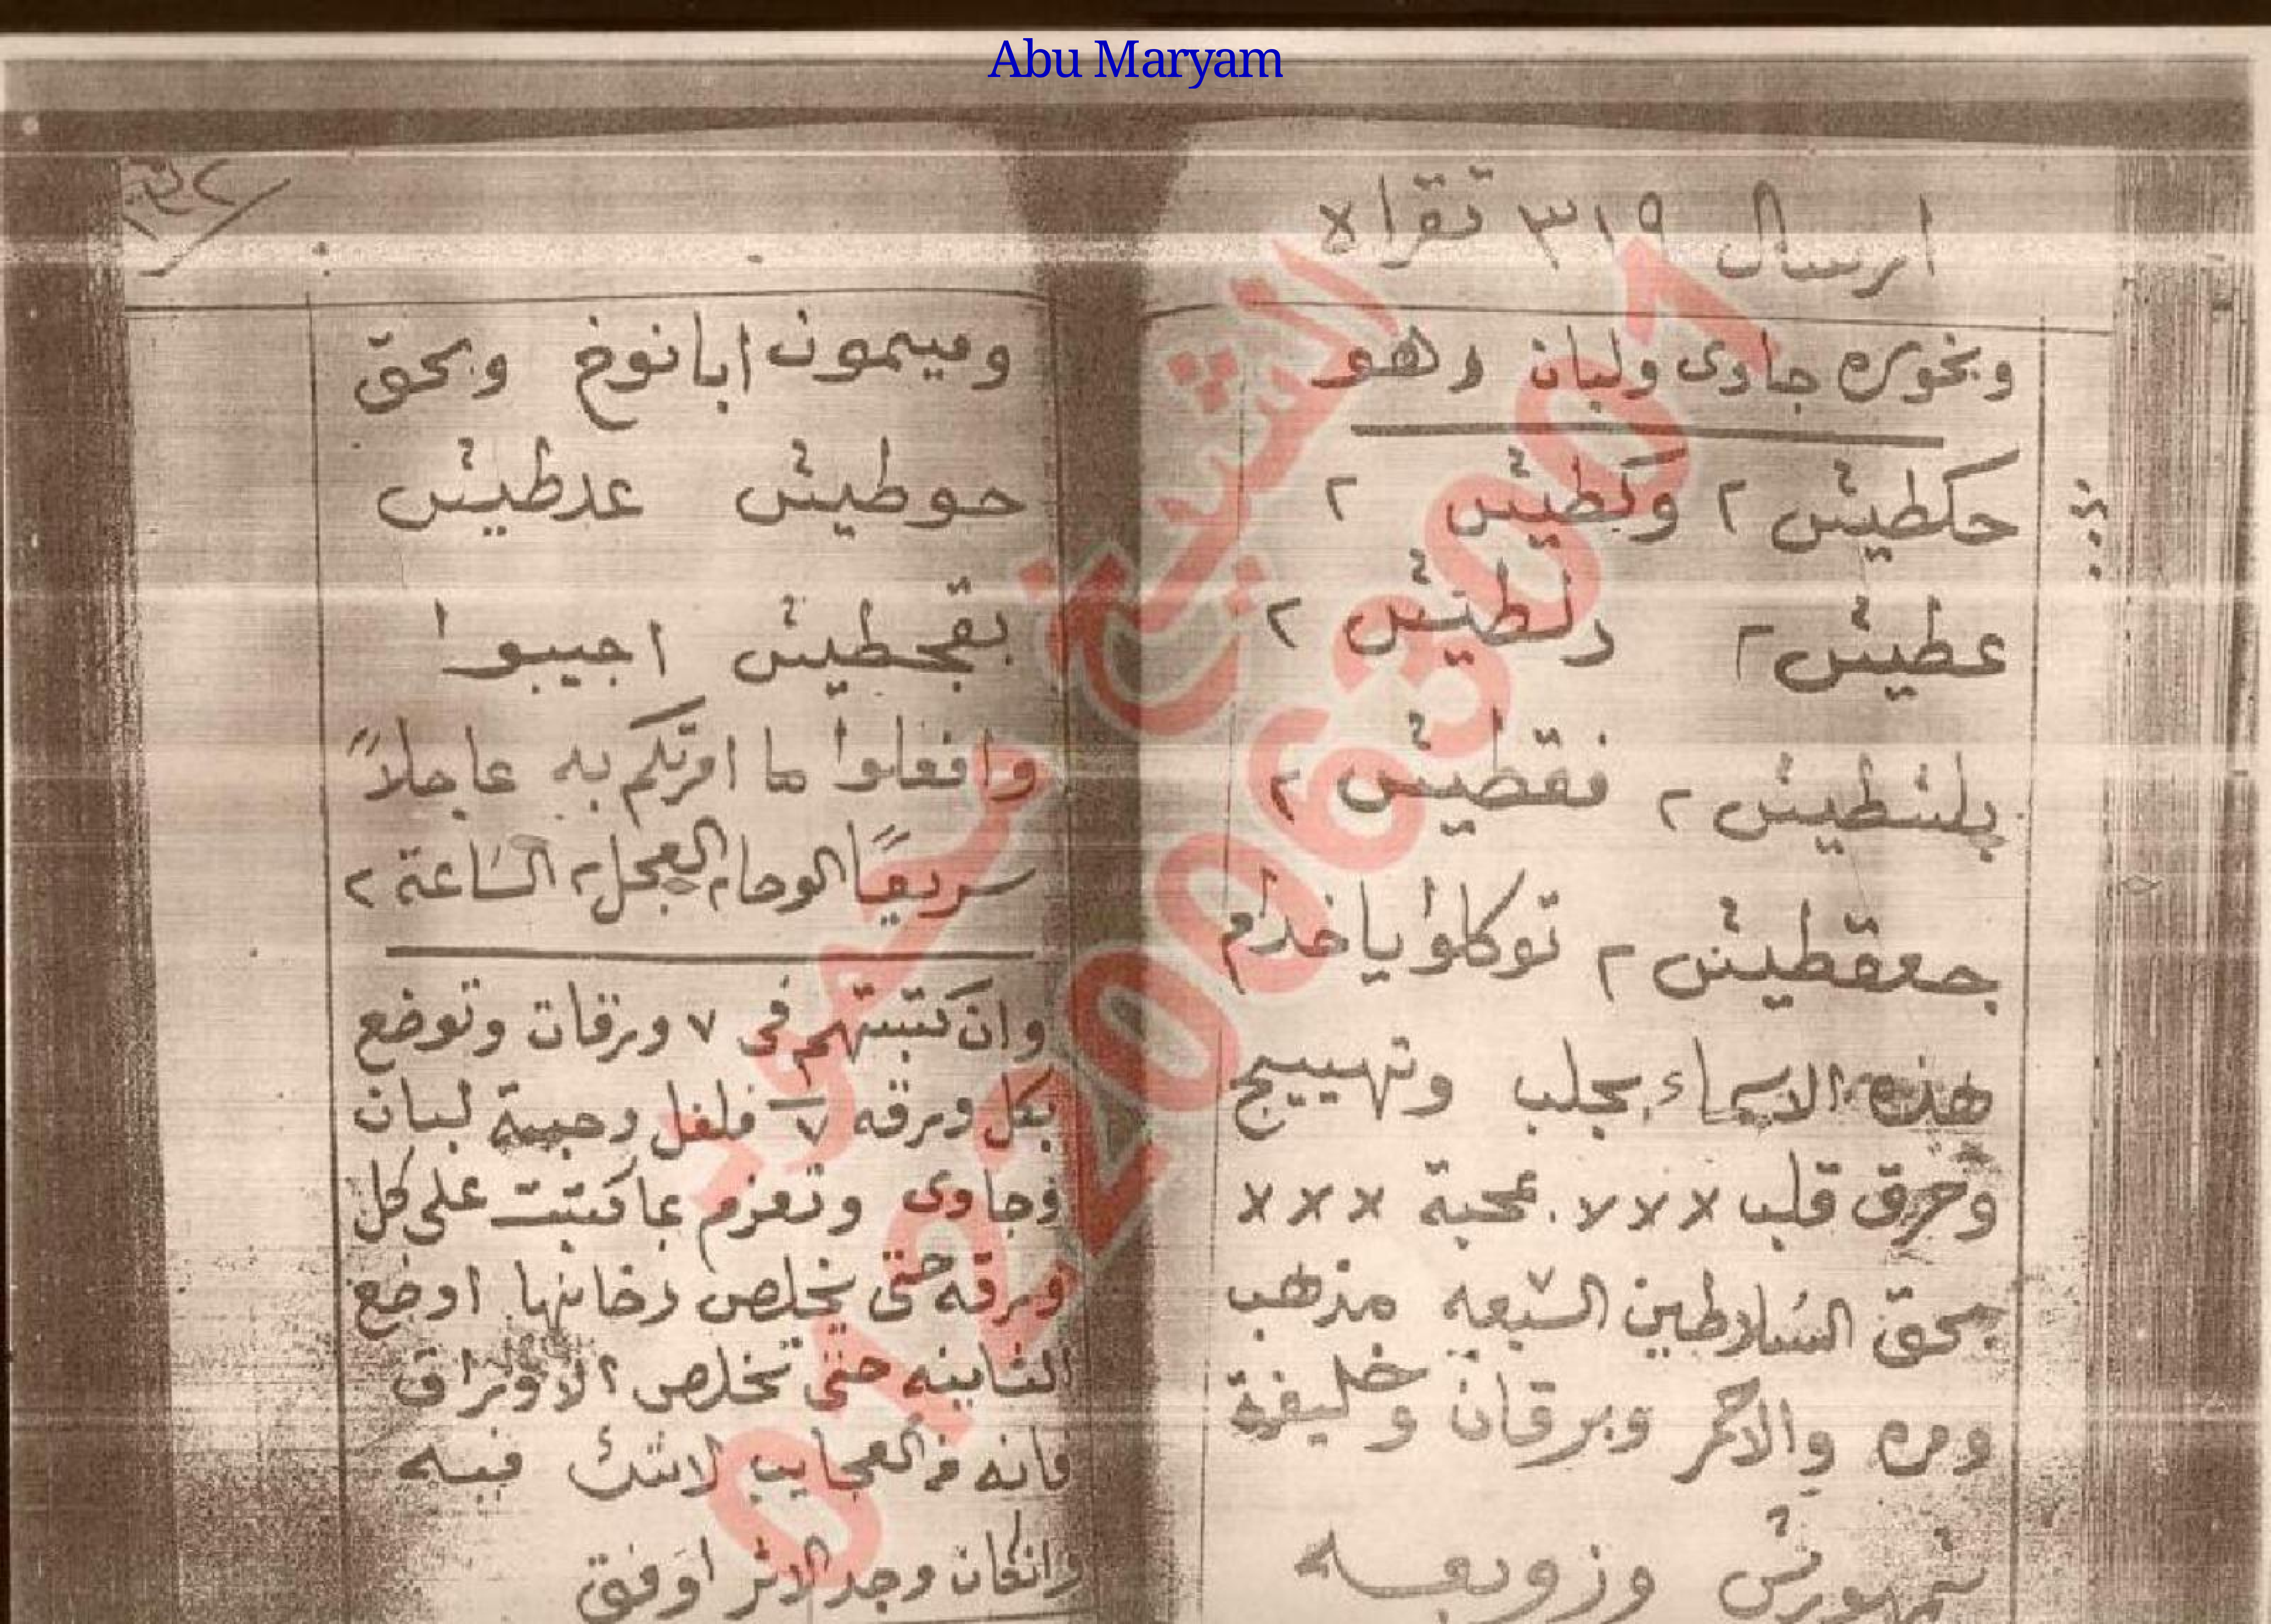 Abu Maryam
ارسال ٣١٩ تقراه
وبخوره جاوى ولبان وهو
حكطيش ٢ وكطيش ٢
عطيش ٢ دلطيش ٢
بلشطيش ٢ فقطيش ٢
جعقطيش ٢ توكلوا يا خدام
هذه الاسماء بجلب وتهييج
وحرق قلب ××× بمحبة ×××
بحق السلاطين السبعه مذهب
ومره والاحمر وبرقان وخليفة
شمهورش وزوبعه
وميمون ابانوخ وبحق
حوطيش عدطيش
بقجطيش اجيبوا
وافعلوا ما امرتكم به عاجلاً
سريعًا الوحا ٢ العجل ٢ الساعة ٢
وان كتبتهم فى ٧ ورقات وتوضع
بكل ورقه ٧ فلفل وحبة لبان
وجاوى وتعزم بما كتبت على كل
ورقه حتى يخلص دخانها اوضع
الثانيه حتى تخلص الاوراق
فانه من العجايب لاشك فيه
وانكان وجد الاثر اوفق
الشيخ محمود
01220063001